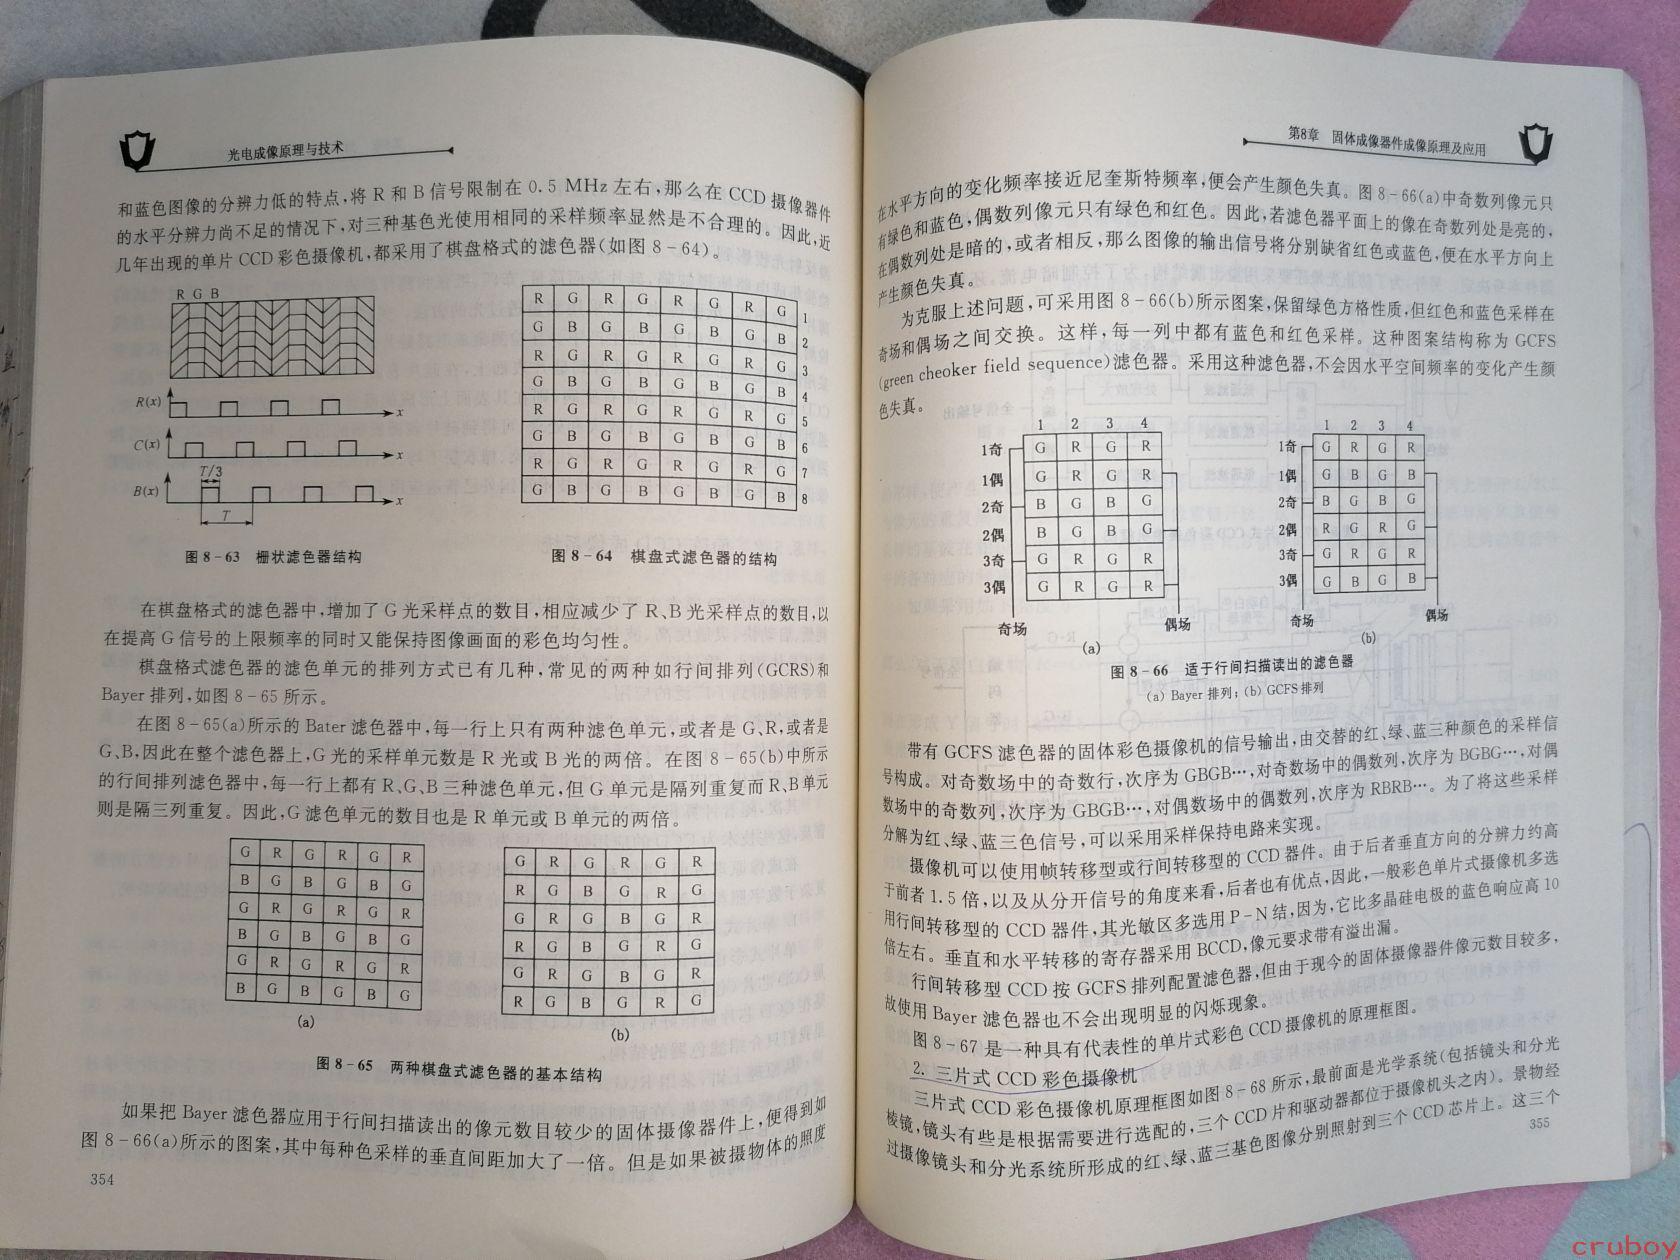 光电成像原理与技术
和蓝色图像的分辨力低的特点,将 R 和 B 信号限制在 0.5 MHz 左右,那么在 CCD 摄像器件
的水平分辨力尚不足的情况下,对三种基色光使用相同的采样频率显然是不合理的。因此,近
几年出现的单片 CCD 彩色摄像机,都采用了棋盘格式的滤色器(如图 8-64)。
R G B
R(x)
x
C(x)
x
T/3
B(x)
x
T
图 8-63 栅状滤色器结构
R G R G R G R G 1
G B G B G B G B 2
R G R G R G R G 3
G B G B G B G B 4
R G R G R G R G 5
G B G B G B G B 6
R G R G R G R G 7
G B G B G B G B 8
图 8-64 棋盘式滤色器的结构
在棋盘格式的滤色器中,增加了 G 光采样点的数目,相应减少了 R、B 光采样点的数目,以
在提高 G 信号的上限频率的同时又能保持图像画面的彩色均匀性。
棋盘格式滤色器的滤色单元的排列方式已有几种,常见的两种如行间排列(GCRS)和
Bayer 排列,如图 8-65 所示。
在图 8-65(a)所示的 Bater 滤色器中,每一行上只有两种滤色单元,或者是 G、R,或者是
G、B,因此在整个滤色器上,G 光的采样单元数是 R 光或 B 光的两倍。在图 8-65(b)中所示
的行间排列滤色器中,每一行上都有 R、G、B 三种滤色单元,但 G 单元是隔列重复而 R、B 单元
则是隔三列重复。因此,G 滤色单元的数目也是 R 单元或 B 单元的两倍。
G R G R G R
B G B G B G
G R G R G R
B G B G B G
G R G R G R
B G B G B G
(a)
G R G R G R
R G B G R G
G R G B G R
R G B G R G
G R G B G R
R G B G R G
(b)
图 8-65 两种棋盘式滤色器的基本结构
如果把 Bayer 滤色器应用于行间扫描读出的像元数目较少的固体摄像器件上,便得到如
图 8-66(a)所示的图案,其中每种色采样的垂直间距加大了一倍。但是如果被摄物体的照度
354
第8章 固体成像器件成像原理及应用
在水平方向的变化频率接近尼奎斯特频率,便会产生颜色失真。图 8-66(a)中奇数列像元只
有绿色和蓝色,偶数列像元只有绿色和红色。因此,若滤色器平面上的像在奇数列处是亮的,
在偶数列处是暗的,或者相反,那么图像的输出信号将分别缺省红色或蓝色,便在水平方向上
产生颜色失真。
为克服上述问题,可采用图 8-66(b)所示图案,保留绿色方格性质,但红色和蓝色采样在
奇场和偶场之间交换。这样,每一列中都有蓝色和红色采样。这种图案结构称为 GCFS
(green cheoker field sequence)滤色器。采用这种滤色器,不会因水平空间频率的变化产生颜
色失真。
1 2 3 4
1奇 G R G R
1偶 G R G R
2奇 B G B G
2偶 B G B G
3奇 G R G R
3偶 G R G R
奇场
偶场
(a)
1 2 3 4
1奇 G R G R
1偶 G B G B
2奇 B G B G
2偶 R G R G
3奇 G R G R
3偶 G B G B
奇场
偶场
(b)
图 8-66 适于行间扫描读出的滤色器
(a) Bayer 排列; (b) GCFS 排列
带有 GCFS 滤色器的固体彩色摄像机的信号输出,由交替的红、绿、蓝三种颜色的采样信
号构成。对奇数场中的奇数行,次序为 GBGB…,对奇数场中的偶数列,次序为 BGBG…,对偶
数场中的奇数列,次序为 GBGB…,对偶数场中的偶数列,次序为 RBRB…。为了将这些采样
分解为红、绿、蓝三色信号,可以采用采样保持电路来实现。
摄像机可以使用帧转移型或行间转移型的 CCD 器件。由于后者垂直方向的分辨力约高
于前者 1.5 倍,以及从分开信号的角度来看,后者也有优点,因此,一般彩色单片式摄像机多选
用行间转移型的 CCD 器件,其光敏区多选用 P-N 结,因为,它比多晶硅电极的蓝色响应高 10
倍左右。垂直和水平转移的寄存器采用 BCCD,像元要求带有溢出漏。
行间转移型 CCD 按 GCFS 排列配置滤色器,但由于现今的固体摄像器件像元数目较多,
故使用 Bayer 滤色器也不会出现明显的闪烁现象。
图 8-67 是一种具有代表性的单片式彩色 CCD 摄像机的原理框图。
2. 三片式 CCD 彩色摄像机
三片式 CCD 彩色摄像机原理框图如图 8-68 所示,最前面是光学系统(包括镜头和分光
棱镜,镜头有些是根据需要进行选配的,三个 CCD 片和驱动器都位于摄像机头之内)。景物经
过摄像镜头和分光系统所形成的红、绿、蓝三基色图像分别照射到三个 CCD 芯片上。这三个
355
cruboy